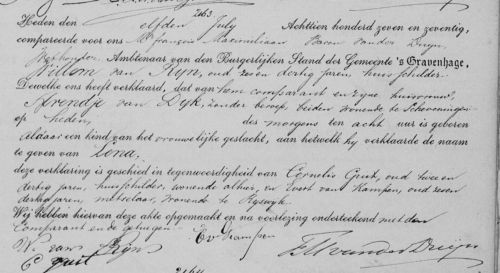 2163.
Heden den elfden July Achttien honderd zeven en zeventig,
compareerde voor ons Mr François Maximiliaan Baron van der Duyn,
Wethouder, Ambtenaar van den Burgerlijken Stand der Gemeente 's Gravenhage,
Willem van Ryn, oud zeven dertig jaren, huisschilder
Dewelke ons heeft verklaard, dat van hem comparant en zyne huisvrouw,
Arendje van Dyk, zonder beroep, beiden wonende te Scheveningen
op heden, des morgens ten acht uur is geboren
aldaar een kind van het vrouwelijke geslacht, aan hetwelk hy verklaarde de naam
te geven van Lena,
deze verklaring is geschied in tegenwoordigheid van Cornelis Quit, oud twee en
dertig jaren, huisschilder, wonende alhier, en Evert van Kampen, oud zeven
dertig jaren, metselaar, wonende te Ryswyk.
Wij hebben hiervan deze akte opgemaakt en na voorlezing onderteekend met den
Comparant en de getuigen.
W. van Ryn
E v Kampen
C Quit
FM van der Duyn
2164